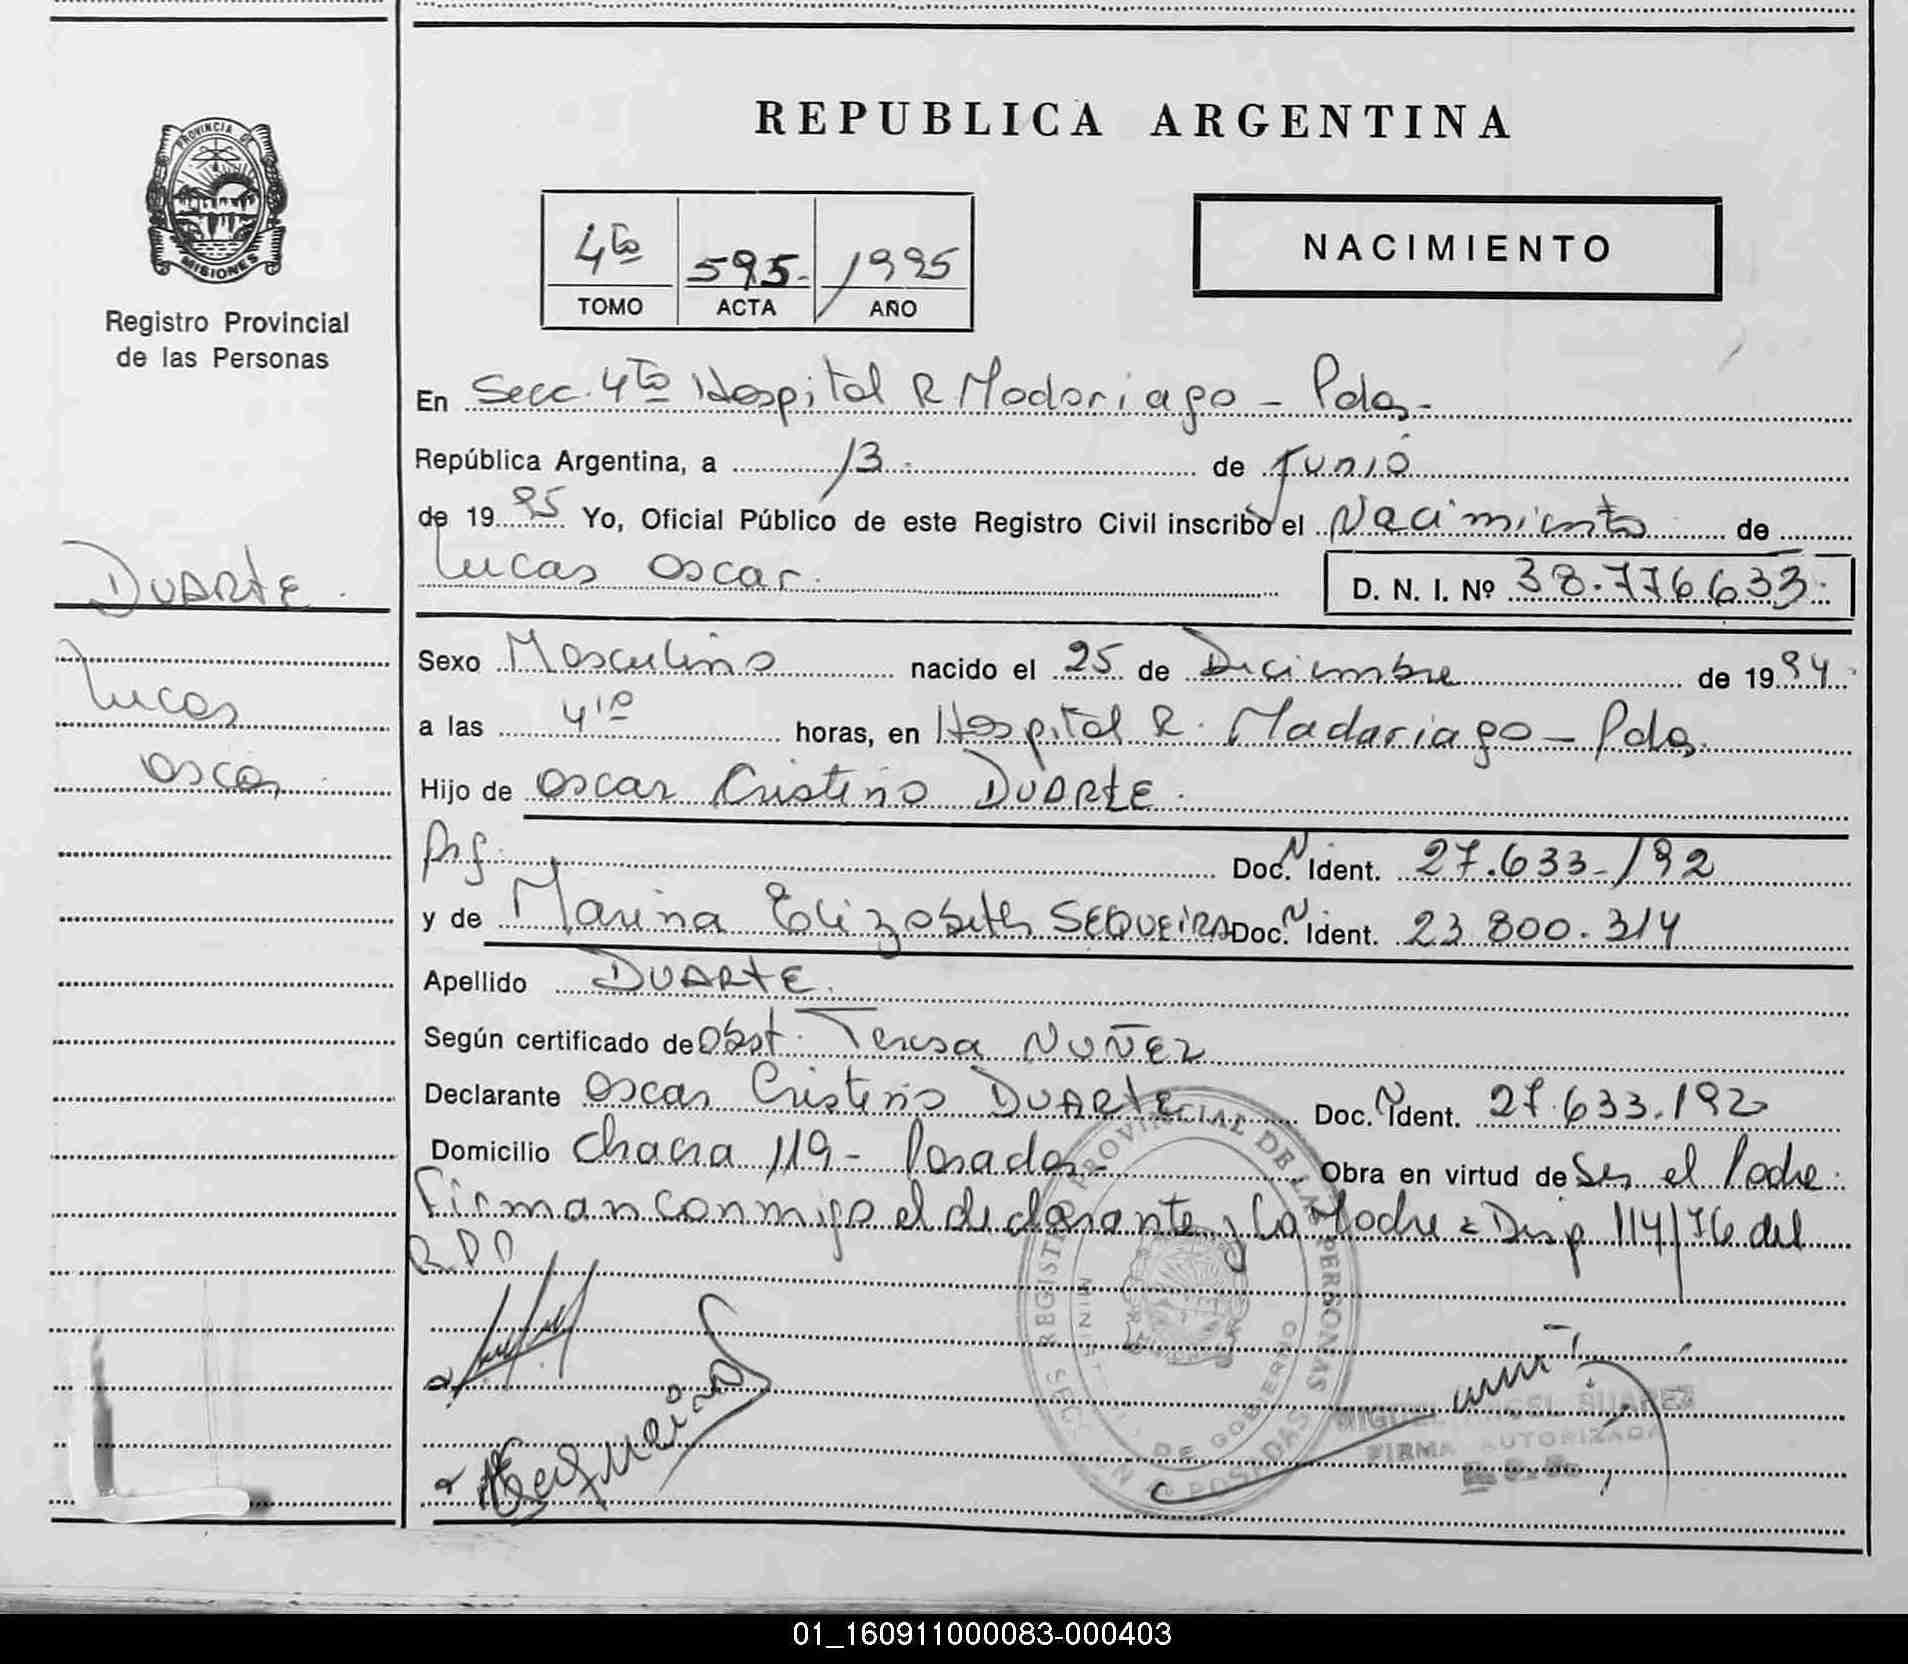 PROVINCIA DE
MISIONES
Registro Provincial
de las Personas
DUARTE.
Lucas
Oscar
REPUBLICA ARGENTINA
4to 595- 1995
TOMO ACTA AÑO
NACIMIENTO
En Secc. 4to Hospital R Madariaga - Pdas.
República Argentina, a 13 de Junio
de 1995 Yo, Oficial Público de este Registro Civil inscribo el Nacimiento de
Lucas Oscar. D. N. I. Nº 38.776633.
Sexo Masculino nacido el 25 de Diciembre de 1994.
a las 4 10 horas, en Hospital R. Madariaga - Pdas.
Hijo de Oscar Cristino DUARTE.
Arg. Doc. N Ident. 27.633.192
y de Marina Elizabeth SEQUEIRA Doc. N Ident. 23 800.314
Apellido DUARTE.
Según certificado de Obst. Teresa NUÑEZ
Declarante Oscar Cristino DUARTE Doc. N Ident. 27.633.192
Domicilio Chacra 119 - Posadas - Obra en virtud de Ser el Padre.
Firman conmigo el declarante y la Madre = Disp 114/76 del
RPP
Sequeira
REGISTRO PROVINCIAL DE LAS PERSONAS
DE GOBIERNO
POSADAS
MIGUEL ANGEL SUAREZ
FIRMA AUTORIZADA
01_160911000083-000403